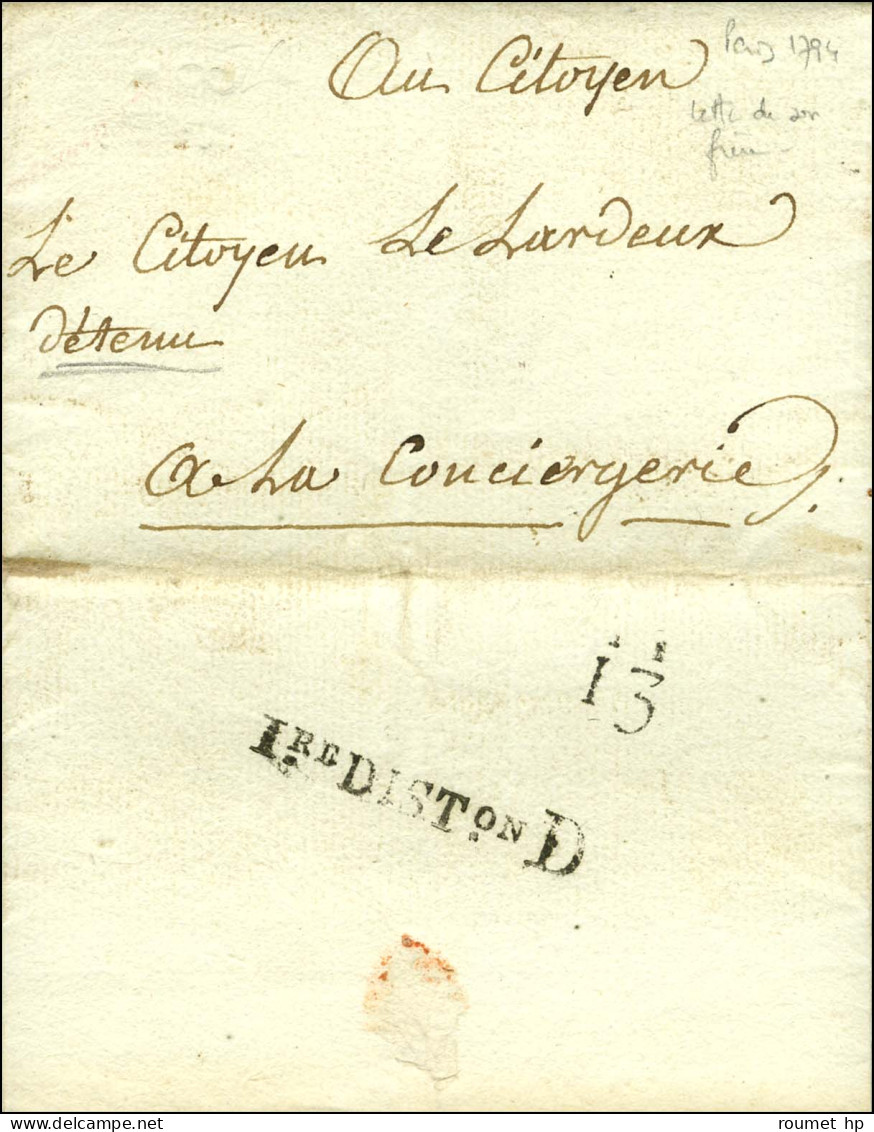 Au Citoyen
Paris 1794
lettre de son
frère
Le Citoyen Le Lardeux
détenu
A La Conciergerie
1 5
1.RE DIST.ON D
roumet hp